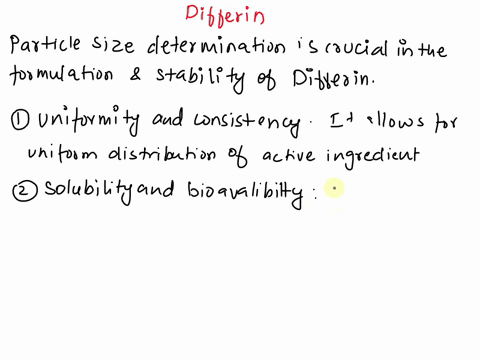 Differin
Particle size determination is crucial in the
formulation & stability of Differin.
① uniformity and consistency. It allows for
uniform distribution of active ingredient
② Solubility and bioavalibilty: